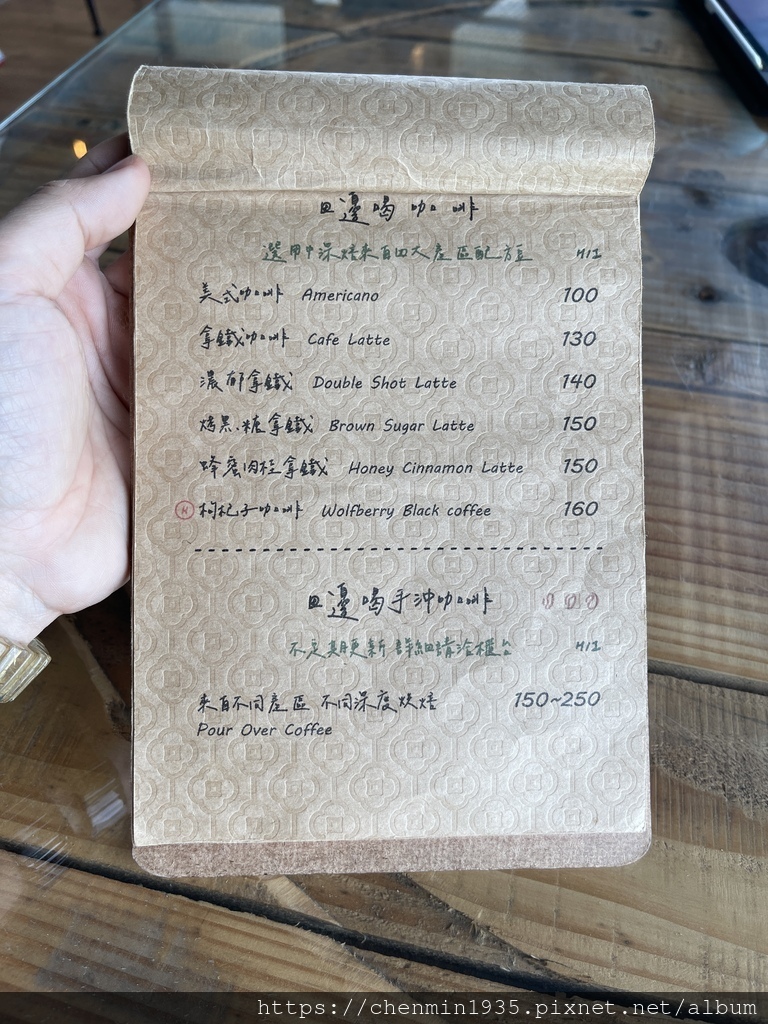 田邊喝咖啡
選用中深焙來自四大產區配方豆 H/I
美式咖啡 Americano 100
拿鐵咖啡 Cafe Latte 130
濃郁拿鐵 Double Shot Latte 140
烤黑糖拿鐵 Brown Sugar Latte 150
蜂蜜肉桂拿鐵 Honey Cinnamon Latte 150
H 枸杞子咖啡 Wolfberry Black coffee 160
田邊喝手沖咖啡
不定期更新 詳細請洽櫃台 H/I
來自不同產區 不同深度烘焙 150~250
Pour Over Coffee
https://chenmin1935.pixnet.net/album